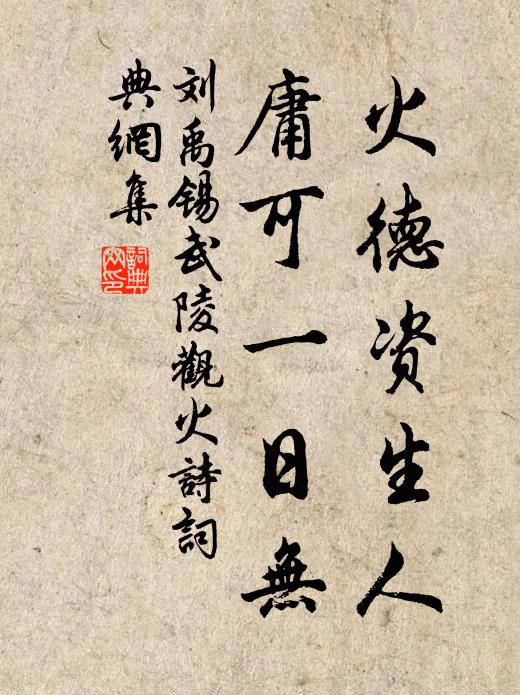 火德资生人
庸可一日無
刘禹锡武陵觀火詩詞
典網集
詞典
网印